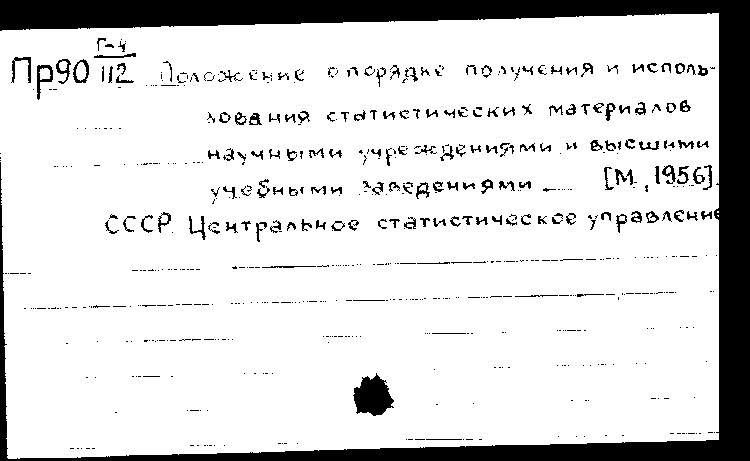 Г-4
Пр90 112 Положение о порядке получения и исполь-
зования статистических материалов
научными учреждениями и высшими
учебными заведениями — [М, 1956].
СССР. Центральное статистическое управление